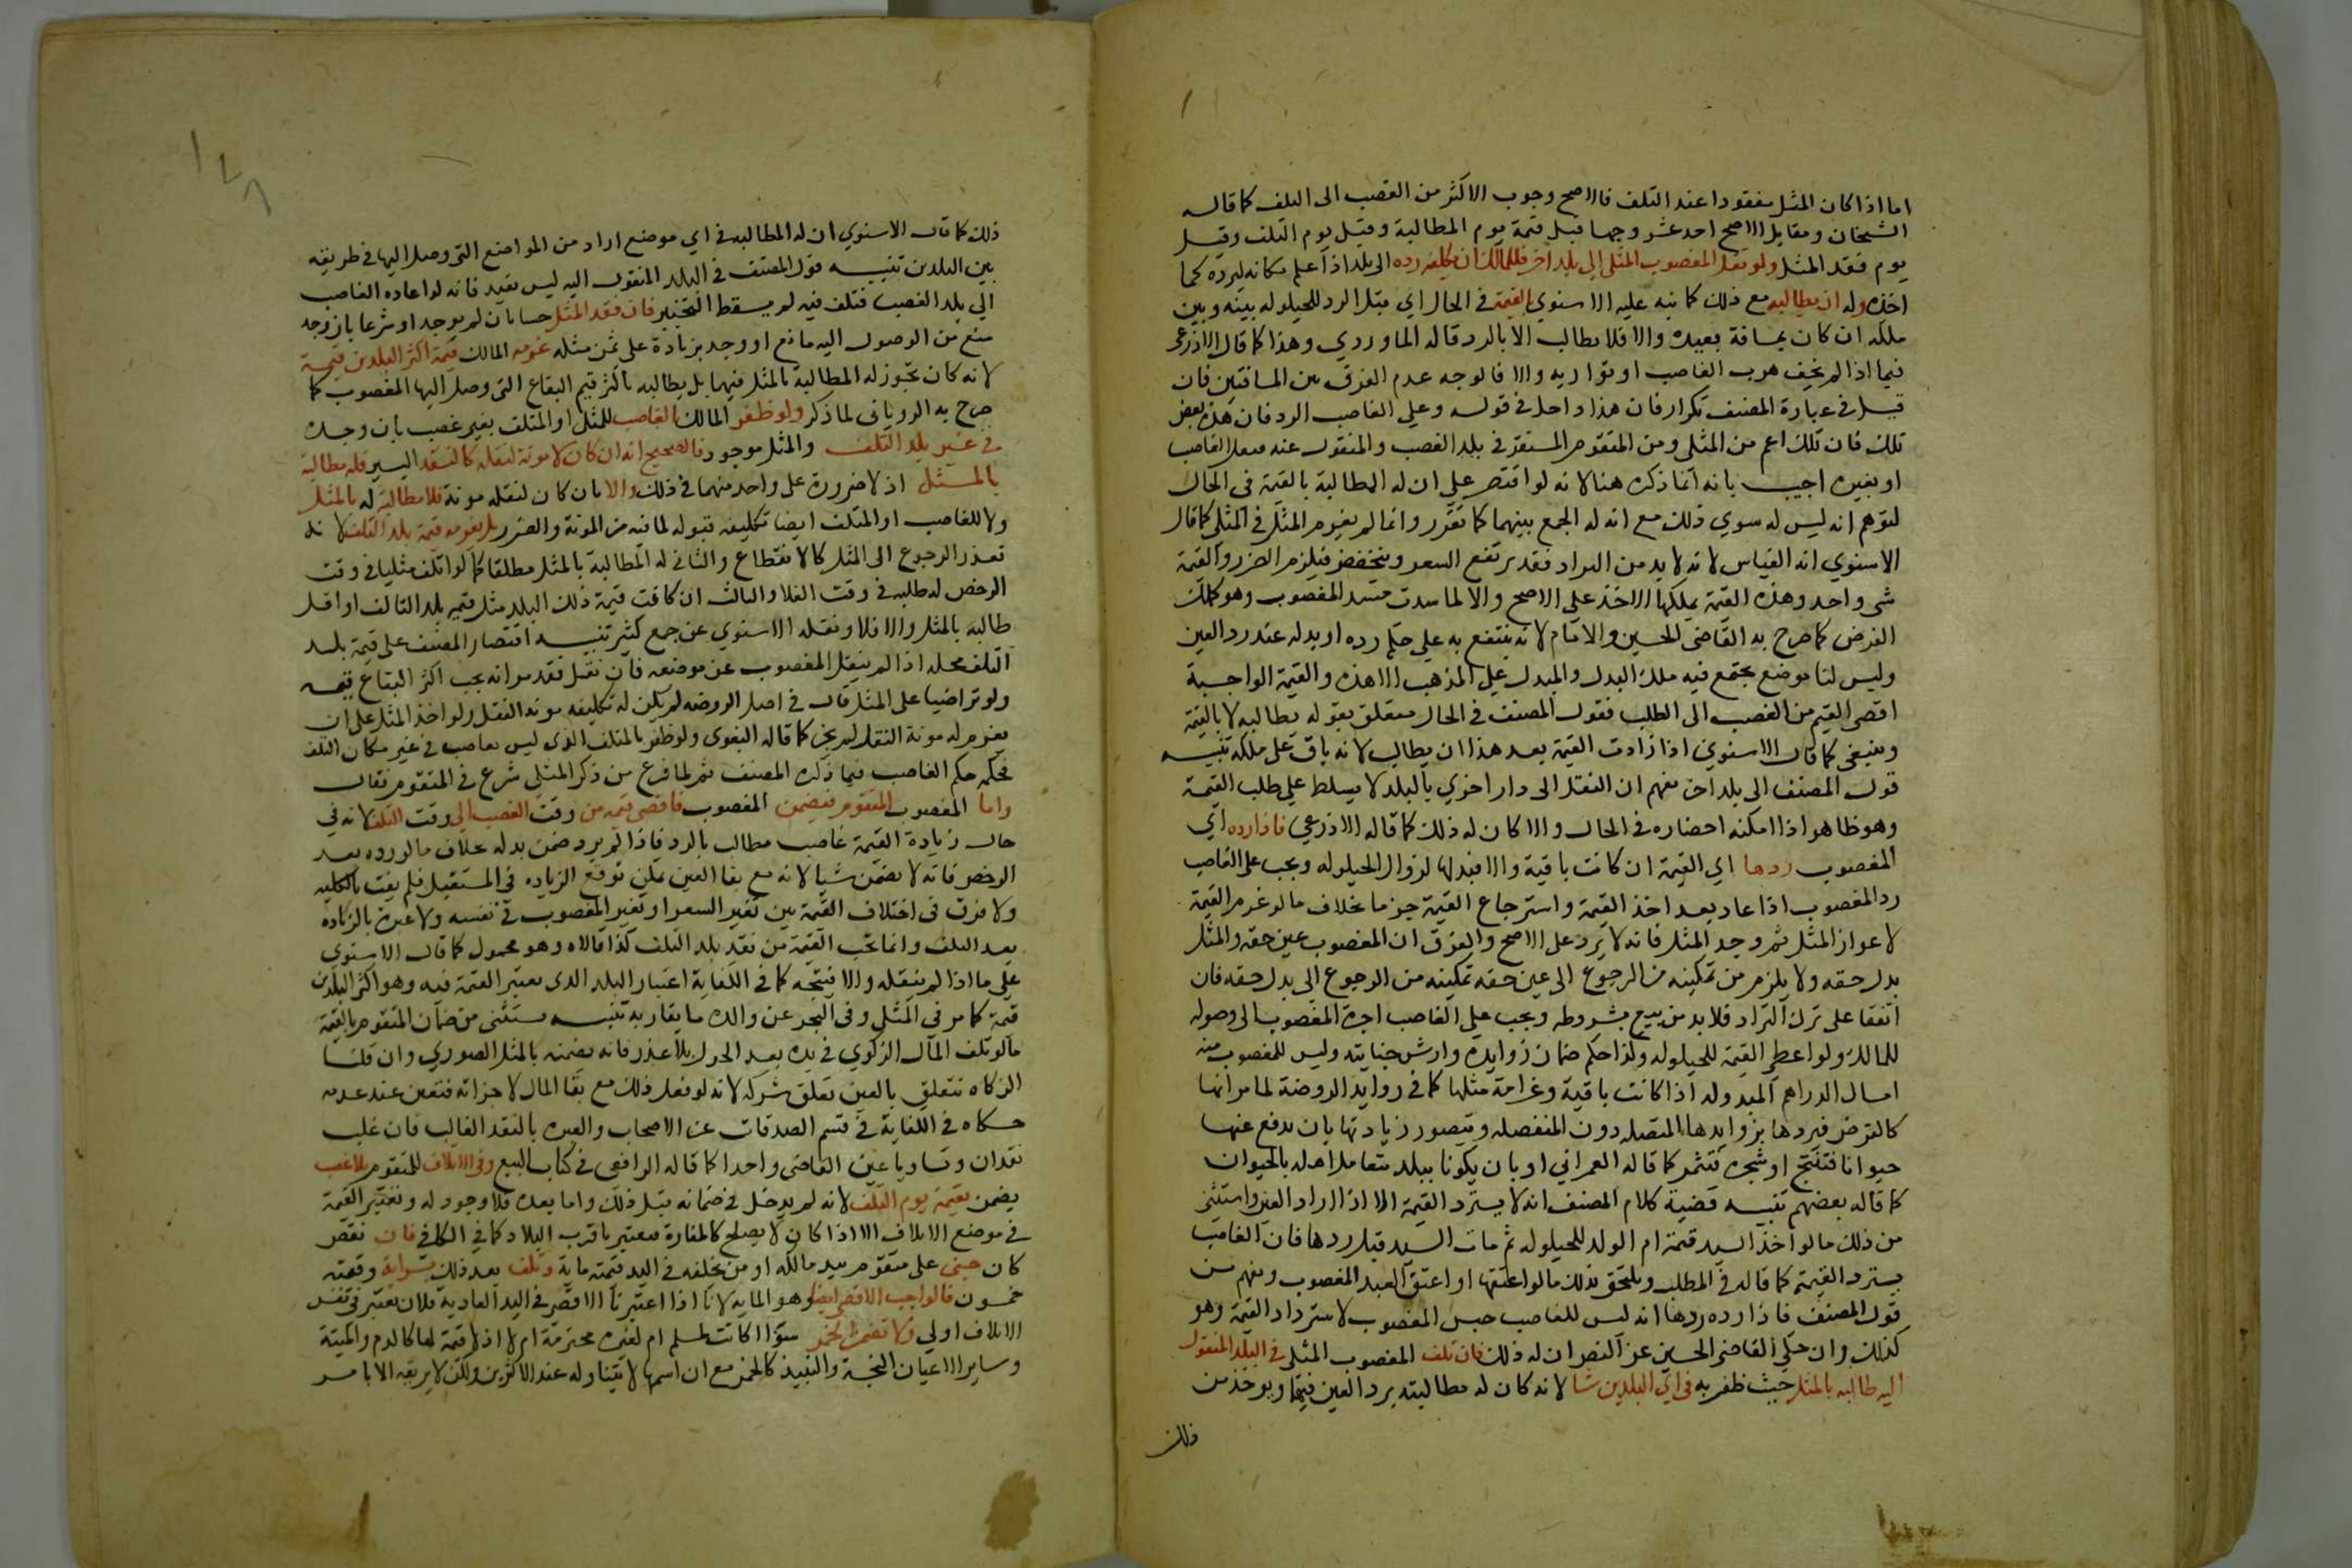 اما اذا كان المثل مفقودا عند التلف فالاصح وجوب الاكثر من الغصب الى التلف كما قاله
الشيخان ومقابل الاصح احد عشر وجها قيل قيمة يوم المطالبة وقيل يوم التلف وقيل
يوم فقد المثل ولو نقل المغصوب المثلى الى بلد اخر فللمالك ان يكلفه رده الى بلد اذا علم مكانه ليرده كما
اخذه وله ان يطالبه مع ذلك كما نبه عليه الاسنوي بالقيمة في الحال اي قبل الرد للحيلوله بينه وبين
ملكه ان كان بمسافة بعيدة والا فلا يطالب الا بالرد قاله الماوردي وهذا كما قال الاذرعى
فيما اذا لم يخف هرب الغاصب او تواريه والا فالوجه عدم الفرق بين المسافتين فان
قيل في عبارة المصنف تكرار فان هذا داخل في قوله وعلى الغاصب الرد فان هذه بعض
تلك فان تلك اعم من المثلى ومن المتقوم المستقر في بلد الغصب والمنقول عنه بفعل الغاصب
او بغيره اجيب بانه انما ذكره هنا لانه لو اقتصر على ان له المطالبة بالقيمة في الحال
لتوهم انه ليس له سوي ذلك مع انه له الجمع بينهما كما تقرر وانما لم يغرم المثل في المثلى كما قال
الاسنوي انه القياس لانه لا بد من التراد فقد يرتفع السعر وينخفض فيلزم الضرر والقيمة
شى واحد وهذه القيمة يملكها الاخذ على الاصح والا لما سدت مسد المغصوب وهو كملك
القرض كما صرح به القاضى الحسين والامام لانه ينتفع به على حكم رده او بدله عند رد العين
وليس لنا موضع يجتمع فيه ملك البدل والمبدل على المذهب الا هذه والقيمة الواجبة
اقصى القيم من الغصب الى الطلب فقول المصنف في الحال متعلق بقوله يطالبه لا بالقيمة
وينبغى كما قال الاسنوي اذا زادت القيمة بعد هذا ان يطالب لانه باق على ملكه تنبيـه
قول المصنف الى بلد اخر يفهم ان النقل الى دار اخري بالبلد لا يسلط على طلب القيمة
وهو ظاهر اذا امكنه احضاره في الحال والا كان له ذلك كما قاله الاذرعي فاذا رده اي
المغصوب ردها اي القيمة ان كانت باقية والا فبدلها لزوال الحيلوله ويجب على الغاصب
رد المغصوب اذا عاد بعد اخذ القيمة واسترجاع القيمة جزما بخلاف ما لو غرم القيمة
لاعواز المثل ثم وجد المثل فانه لا يرد على الاصح والفرق ان المغصوب عين حقه والمثل
بدل حقه ولا يلزم من تمكينه من الرجوع الى عين حقه تمكينه من الرجوع الى بدل حقه فان
اتفقا على ترك التراد فلا بد من بيع بشروطه ويجب على الغاصب اجرة المغصوب الى وصوله
للمالك ولو اعطى القيمة للحيلوله وكذا حكم ضمان زوايده وارش جنايته وليس للمغصوب منه
امساك الدراهم المبدوله اذا كانت باقية وغرامة مثلها كما في زوايد الروضة لما مر انها
كالقرض فيردها بزوايدها المتصله دون المنفصله ويتصور زيادتها بان يدفع عنها
حيوانا فتنتج او شجره فتثمر كما قاله العمراني او بان يكونا ببلد يتعامل اهله بالحيوان
كما قاله بعضهم تنبيه قضية كلام المصنف انه لا يسترد القيمة الا اذا اراد العين واستثنى
من ذلك ما لو اخذ السيد قيمة ام الولد للحيلوله ثم مات السيد قبل ردها فان الغاصب
يسترد القيمة كما قاله في المطلب ويلتحق بذلك ما لو اعتقها او اعتق العبد المغصوب ويفهم من
قول المصنف فاذا رده ردها انه ليس للغاصب حبس المغصوب لاسترداد القيمة وهو
كذلك وان حكى القاضى الحسين عن النص ان له ذلك فان تلف المغصوب المثلى في البلد المنقول
اليه طالبه بالمثل حيث ظفر به في اي البلدين شا لانه كان له مطالبته برد العين فيهما ويوخذ من
ذلك
ذلك كما قال الاسنوي ان له المطالبه في اي موضع اراد من المواضع التى وصل اليها في طريقه
بين البلدين تنبيـه قول المصنف في البلد المنقول اليه ليس بقيد فانه لو اعاده الغاصب
الي بلد الغصب فتلف فيه لم يسقط التخيير فان فقد المثل حسا بان لم يوجد او شرعا بان وجد
منع من الوصول اليه مانع او وجد بزيادة على ثمن مثله غرمه المالك قيمة اكثر البلدين قيمـة
لانه كان تجوز له المطالبة بالمثل فيهما بل يطالبه باكثر قيم البقاع التى وصل اليها المغصوب كما
صرح به الروياني لما ذكر ولو ظفر المالك بالغاصب للمثل او المتلف بغير غصب بان وجده
في غير بلد التلف والمثل موجود فالصحيح انه ان كان لا مونة لنقله كالنقد اليسير فله مطالبة
بالمـثل اذ لا ضرورة على واحد منهما في ذلك والا بان كان لنقله مونة فلا مطالبة له بالمثل
ولا للغاصب او المتلف ايضا تكليفه قبوله لما فيه من المونة والضرر بل يغرمه قيمة بلد التلف لانه
تعذر الرجوع الى المثل كالانقطاع والثاني له المطالبة بالمثل مطلقا كما لو اتلف مثليا في وقت
الرخص له طلبه في وقت الغلا والثالث ان كانت قيمة ذلك البلد مثل قيمة بلد التالف او اقل
طالبه بالمثل والا فلا ونقله الاسنوي عن جمع كثير تنبيـه اقتصار المصنف على قيمة بلـد
التلف محله اذا لم ينقل المغصوب عن موضعه فان نقل فقد مر انه يجب اكثر البقاع قيمه
ولو تراضيا على المثل قال في اصل الروضه لم يكن له تكليفه مونة النقل ولو اخذ المثل على ان
يغرم له مونة النقل لم يجز كما قاله البغوى ولو ظفر بالمتلف الذى ليس بغاصب في غير مكان التلف
فحكمه حكم الغاصب فيما ذكره المصنف ثم لما فرغ من ذكر المثلى شرع في المتقوم فقال
واما المغصوب المتقوم فيضمن المغصوب باقصى قيمه من وقت الغصب الى وقت التلف لانه في
حال زيادة القيمة غاصب مطالب بالرد فاذا لم يرد ضمن بدله بخلاف ما لو رده بعد
الرخص فانه لا يضمن شيا لانه مع بقا العين يمكن توقع الزياده في المستقبل فلم يفت بالكليه
ولا فرق في اختلاف القيمة بين تغير السعر او تغير المغصوب في نفسه ولا عبرة بالزياده
بعد التلف وانما تجب القيمة من نقد بلد التلف كذا قالاه وهو محمول كما قال الاسنوى
على ما اذا لم ينقله والا فيتجه كما في الكفاية اعتبار البلد الذى يعتبر القيمة فيه وهو اكثر البلدين
قيمة كما مر في المثلى وفي البحر عن والده ما يقاربه تنبيـه يستثنى من ضمان المتقوم بالقيمة
ما لو تلف المال الزكوي في يده بعد الحول بلا عذر فانه يضمنه بالمثل الصوري وان قلنا
الزكاه تتعلق بالعين تعلق شركه لانه لو فعل ذلك مع بقا المال لاجزاته فتعين عند عدمه
حكاه في الكفاية في قسم الصدقات عن الاصحاب والعبره بالنقد الغالب فان غلب
نقدان وتساويا عين القاضى واحدا كما قاله الرافعى في كتاب البيع وفي الاتلاف للمتقوم بلا غصب
يضمن بقيمة يوم التلف لانه لم يدخل في ضمانه قبل ذلك واما بعده فلا وجود له وتعتبر القيمة
في موضع الاتلاف الا اذا كان لا يصلح كالمفازة فيعتبر باقرب البلاد كما في الكافي فان نقص
كان جنى على متقوم بيد مالكه او من يخلفه في اليد قيمته ماية وتلف بعد ذلك بسراية وقيمته
خمسون فالواجب الاقصى ايضا وهو المايه لانا اذا اعتبرنا الاقصى في اليد العادية فلان يعتبر في نفس
الاتلاف اولى ولا تضمن الخمر سوا اكانت لمسلم ام لغيره محترمة ام لا اذ لا قيمة لها كالدم والميتة
وساير الاعيان النجسة والنبيذ كالخمر مع ان اسمها لا يتناوله عند الاكثرين ولكن لا يريقه الا بامر